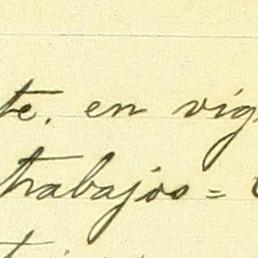 te. en vig
trabajos =